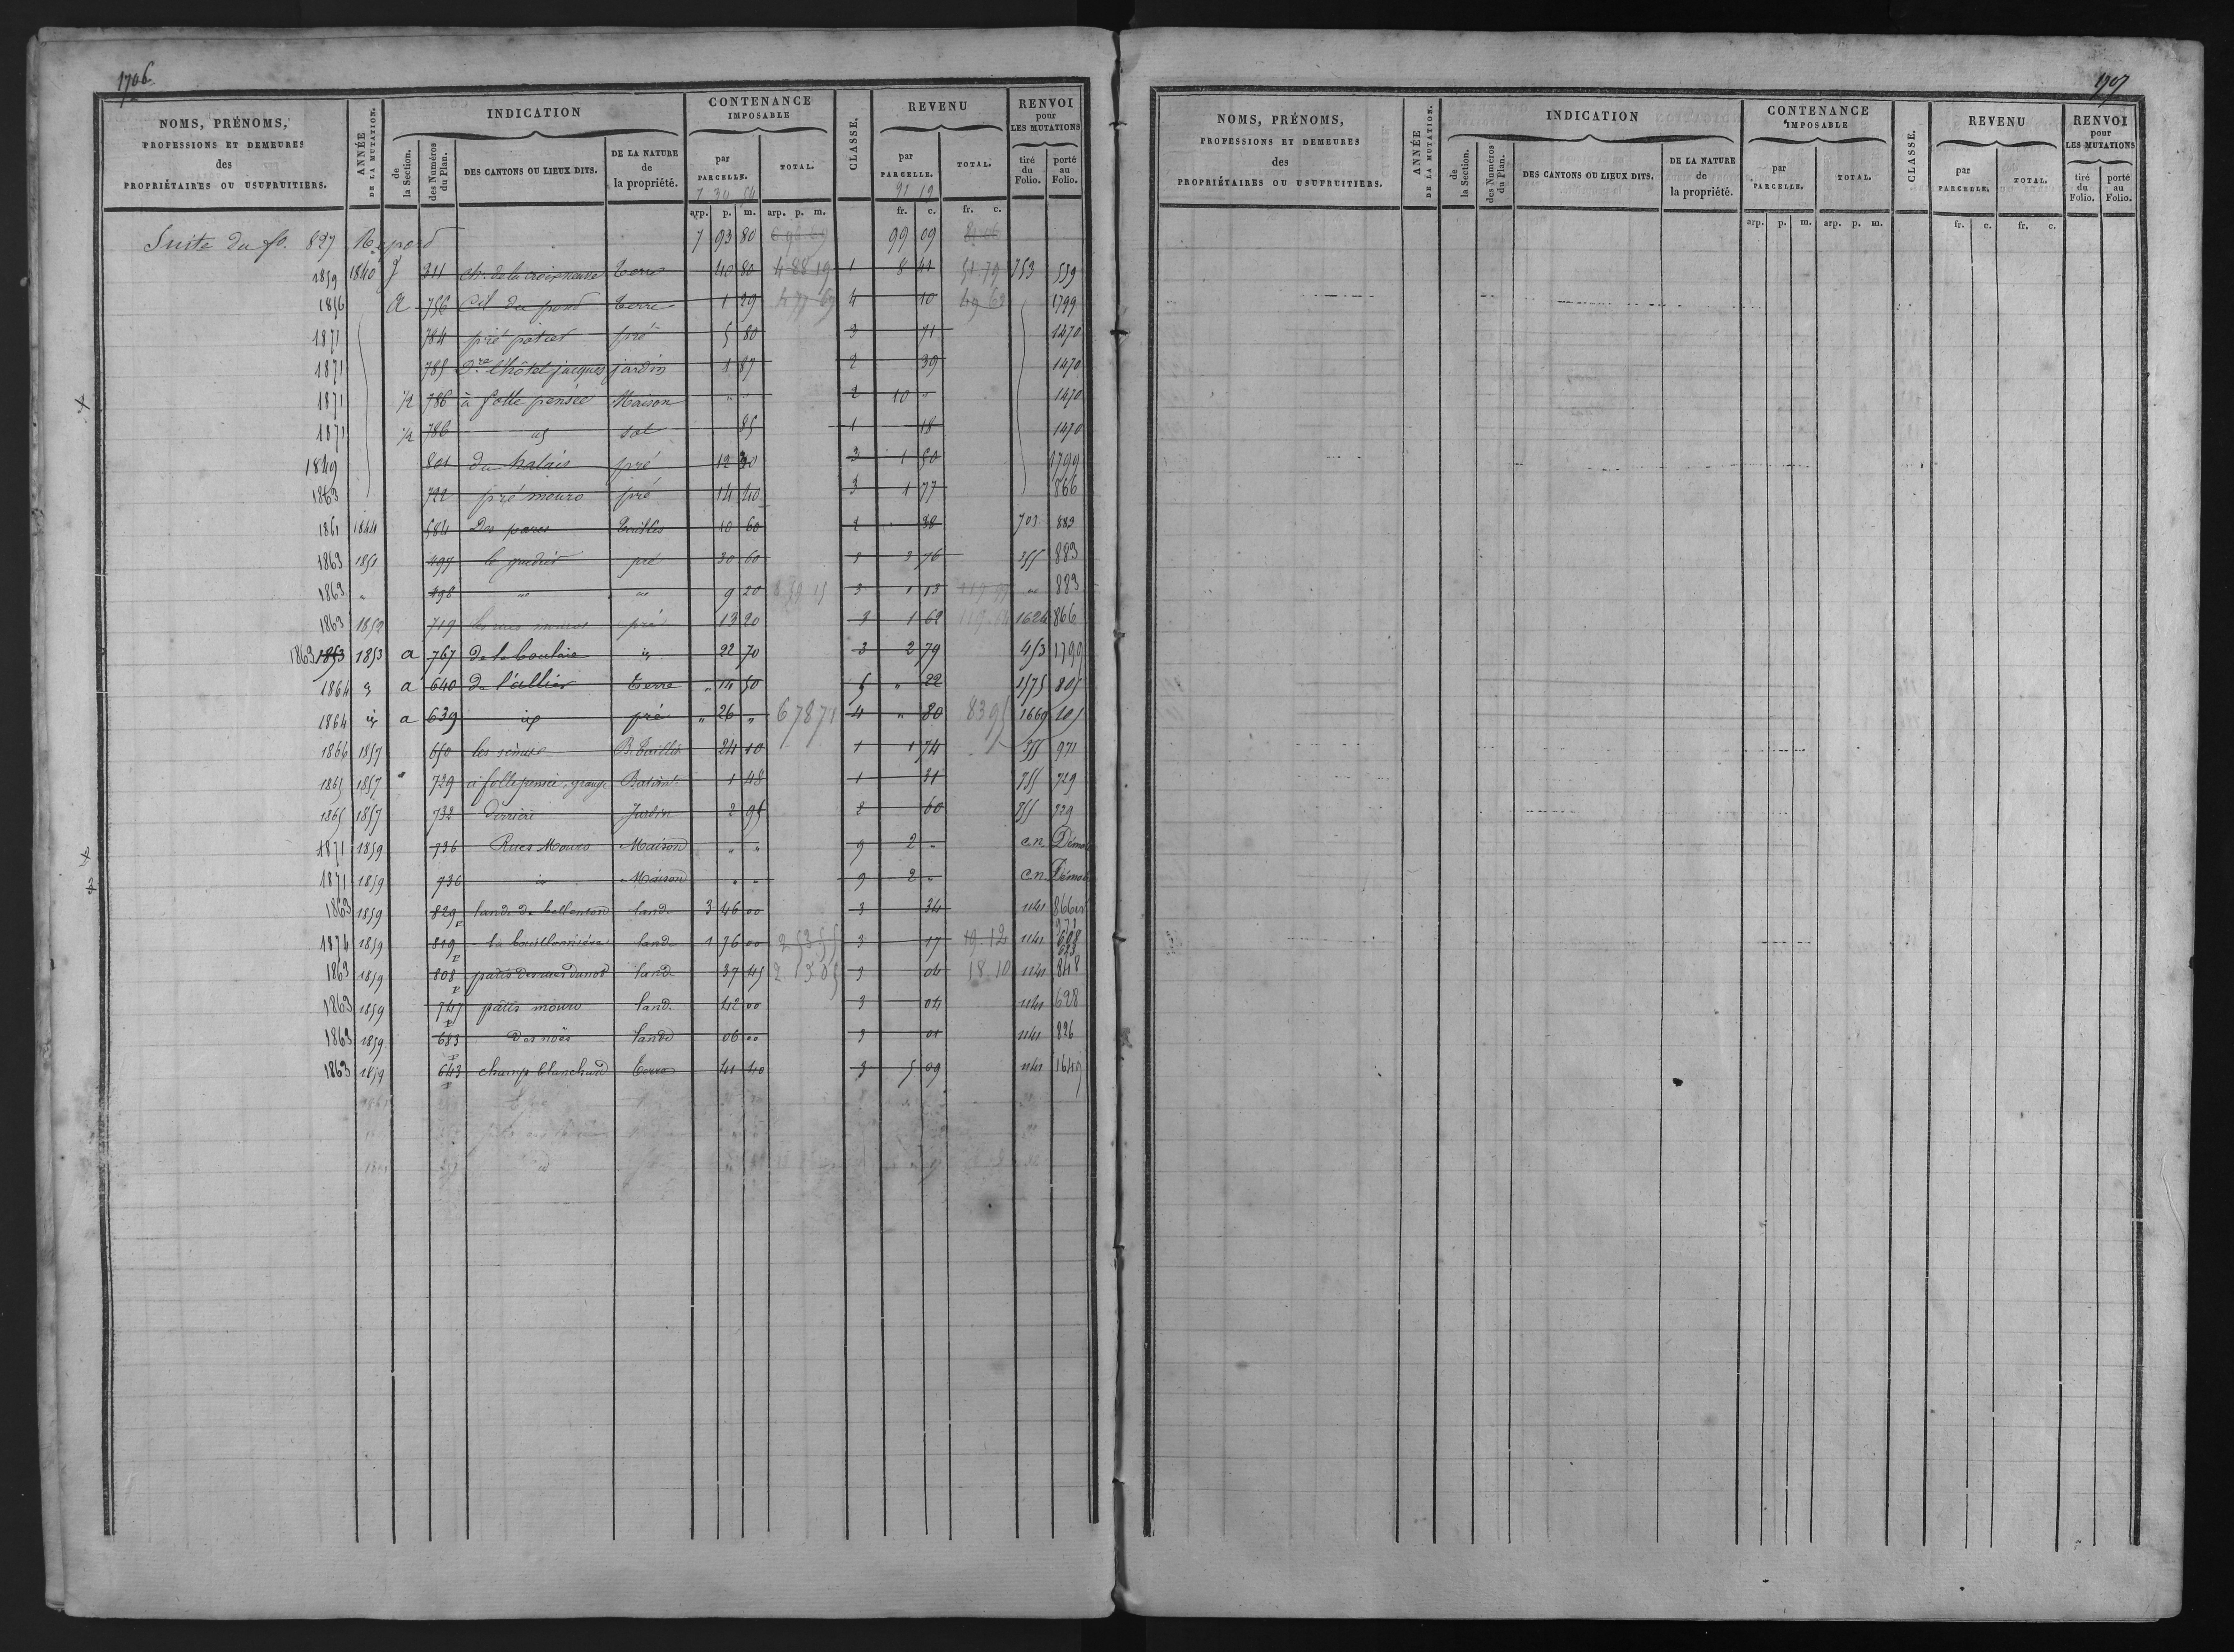 1706
NOMS, PRÉNOMS, PROFESSIONS ET DEMEURES des PROPRIÉTAIRES OU USUFRUITIERS. ANNÉE DE LA MUTATION. INDICATION de la Section. des Numéros du Plan. DES CANTONS OU LIEUX DITS. DE LA NATURE de la propriété. CONTENANCE IMPOSABLE par PARCELLE. TOTAL. CLASSE. REVENU par PARCELLE. TOTAL. RENVOI pour LES MUTATIONS tiré du Folio. porté au Folio.
7 34 54 91 12
arp. p. m. arp. p. m. fr. c. fr. c.
Suite du fo. 827 Report 7 93 80 99 09
1859 1840 J 311 ch. de la croix neuve Terre 40 80 4 88 19 1 8 41 51 79 753 559
1856 A 756 Terre 1 29 4 77 69 4 10 49 62 1799
1871 784 pré pottier pré 5 80 3 71 1470
1871 785 Dre l'hôtel jacques jardin 1 87 2 39 1470
1871 1/2 786 à folle pensée Maison " " 2 10 " 1470
1871 1/2 786 id sol 85 1 18 1470
1849 801 du halais pré 12 30 3 1 50 1799
1863 722 pré mouro pré 14 40 3 1 77 866
1861 1844 584 Des parcs Taillis 10 60 2 38 703 883
1863 1851 497 pré 30 60 3 3 76 355 883
1863 " 498 " " 9 20 3 1 13 " 883
1863 1852 719 les rues mouros pré 13 20 3 1 62 1624 866
1863 1853 1853 a 767 De la boulaie id 22 70 3 2 79 453 1799
1864 id a 640 De l'allier Terre " 14 50 5 " 22 1575 805
1864 id a 639 id pré " 26 " 6 78 71 4 " 80 83 95 1669 105
1866 1857 650 B. Taillis 24 10 1 1 74 355 971
1865 1857 " 729 à folle pensée, grange Batimt 1 48 1 31 355 729
1865 1857 732 Derrière Jardin 2 95 2 60 355 729
1871 1859 736 Rues Mouro Maison " " 9 2 " c.n. Démol
1871 1859 736 id Maison " " 9 2 " c.n. Démol
1863 1859 829p lande de bellenton lande 3 46 00 3 34 1141 866
1874 1859 819p la bouillonnière lande 1 76 00 2 53 55 3 17 19.12 1141 971 608 623
1863 1859 808p lande 37 45 3 04 18.10 1141 848
1863 1859 747p patis mouro lande 42 00 3 04 1141 698
1863 1859 683p Des nöes lande 06 00 3 01 1141 826
1863 1859 643p champ blanchard Terre 41 40 3 5 09 1141 1649
1707
NOMS, PRÉNOMS, PROFESSIONS ET DEMEURES des PROPRIÉTAIRES OU USUFRUITIERS. ANNÉE DE LA MUTATION. INDICATION de la Section. des Numéros du Plan. DES CANTONS OU LIEUX DITS. DE LA NATURE de la propriété. CONTENANCE IMPOSABLE par PARCELLE. TOTAL. CLASSE. REVENU par PARCELLE. TOTAL. RENVOI pour LES MUTATIONS tiré du Folio. porté au Folio.
arp. p. m. arp. p. m. fr. c. fr. c.